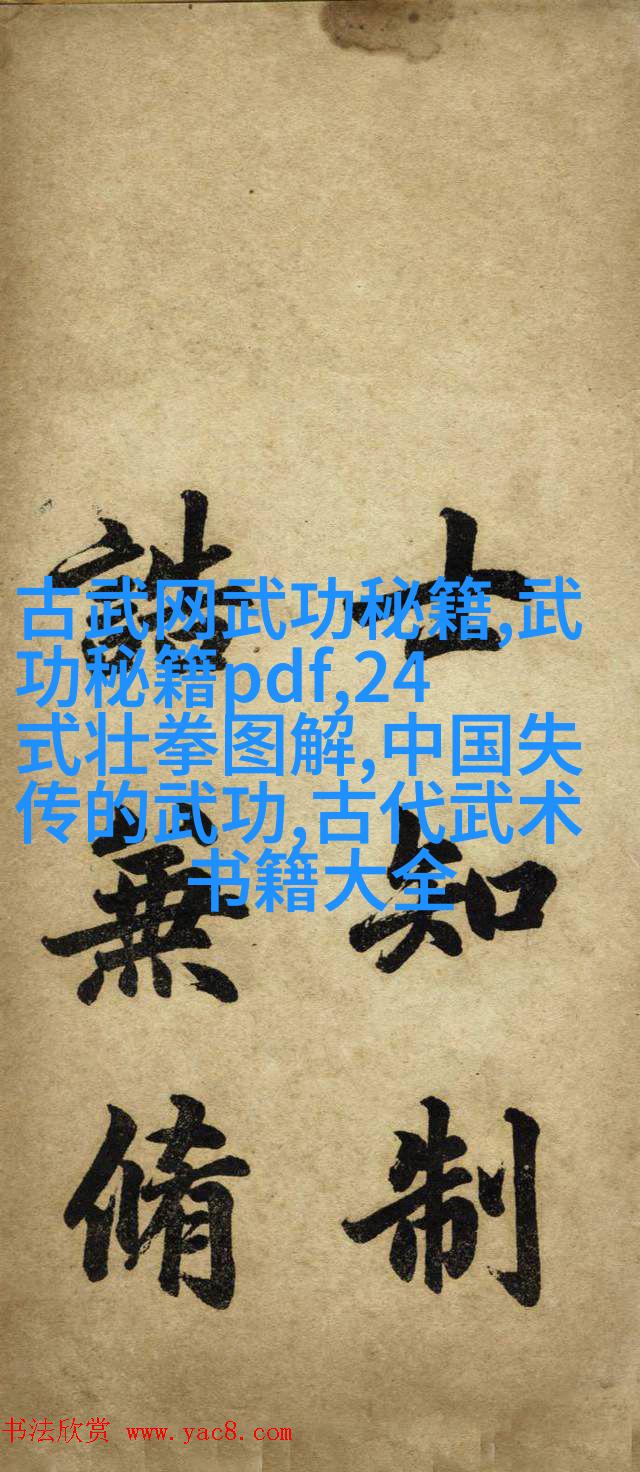 古武网武功秘籍,武
功秘籍pdf,24
式壮拳图解,中国失
传的武功,古代武术
书籍大全
士知制
誥兼脩
书法欣赏 www.yac8.com